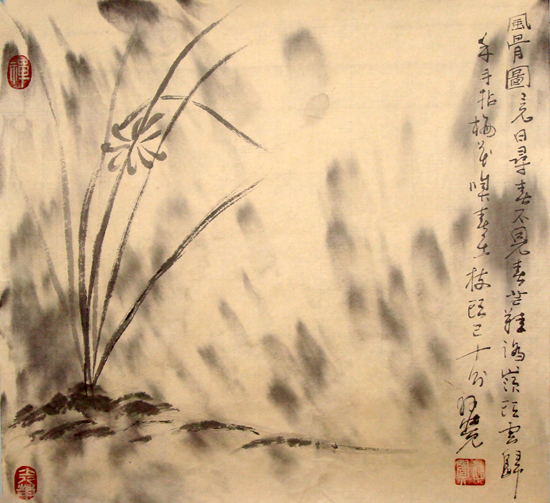 風骨圖 竟日尋春不見春芒鞋踏嶺頭雲歸
來手拈梅花嗅春在枝頭已十分
禪